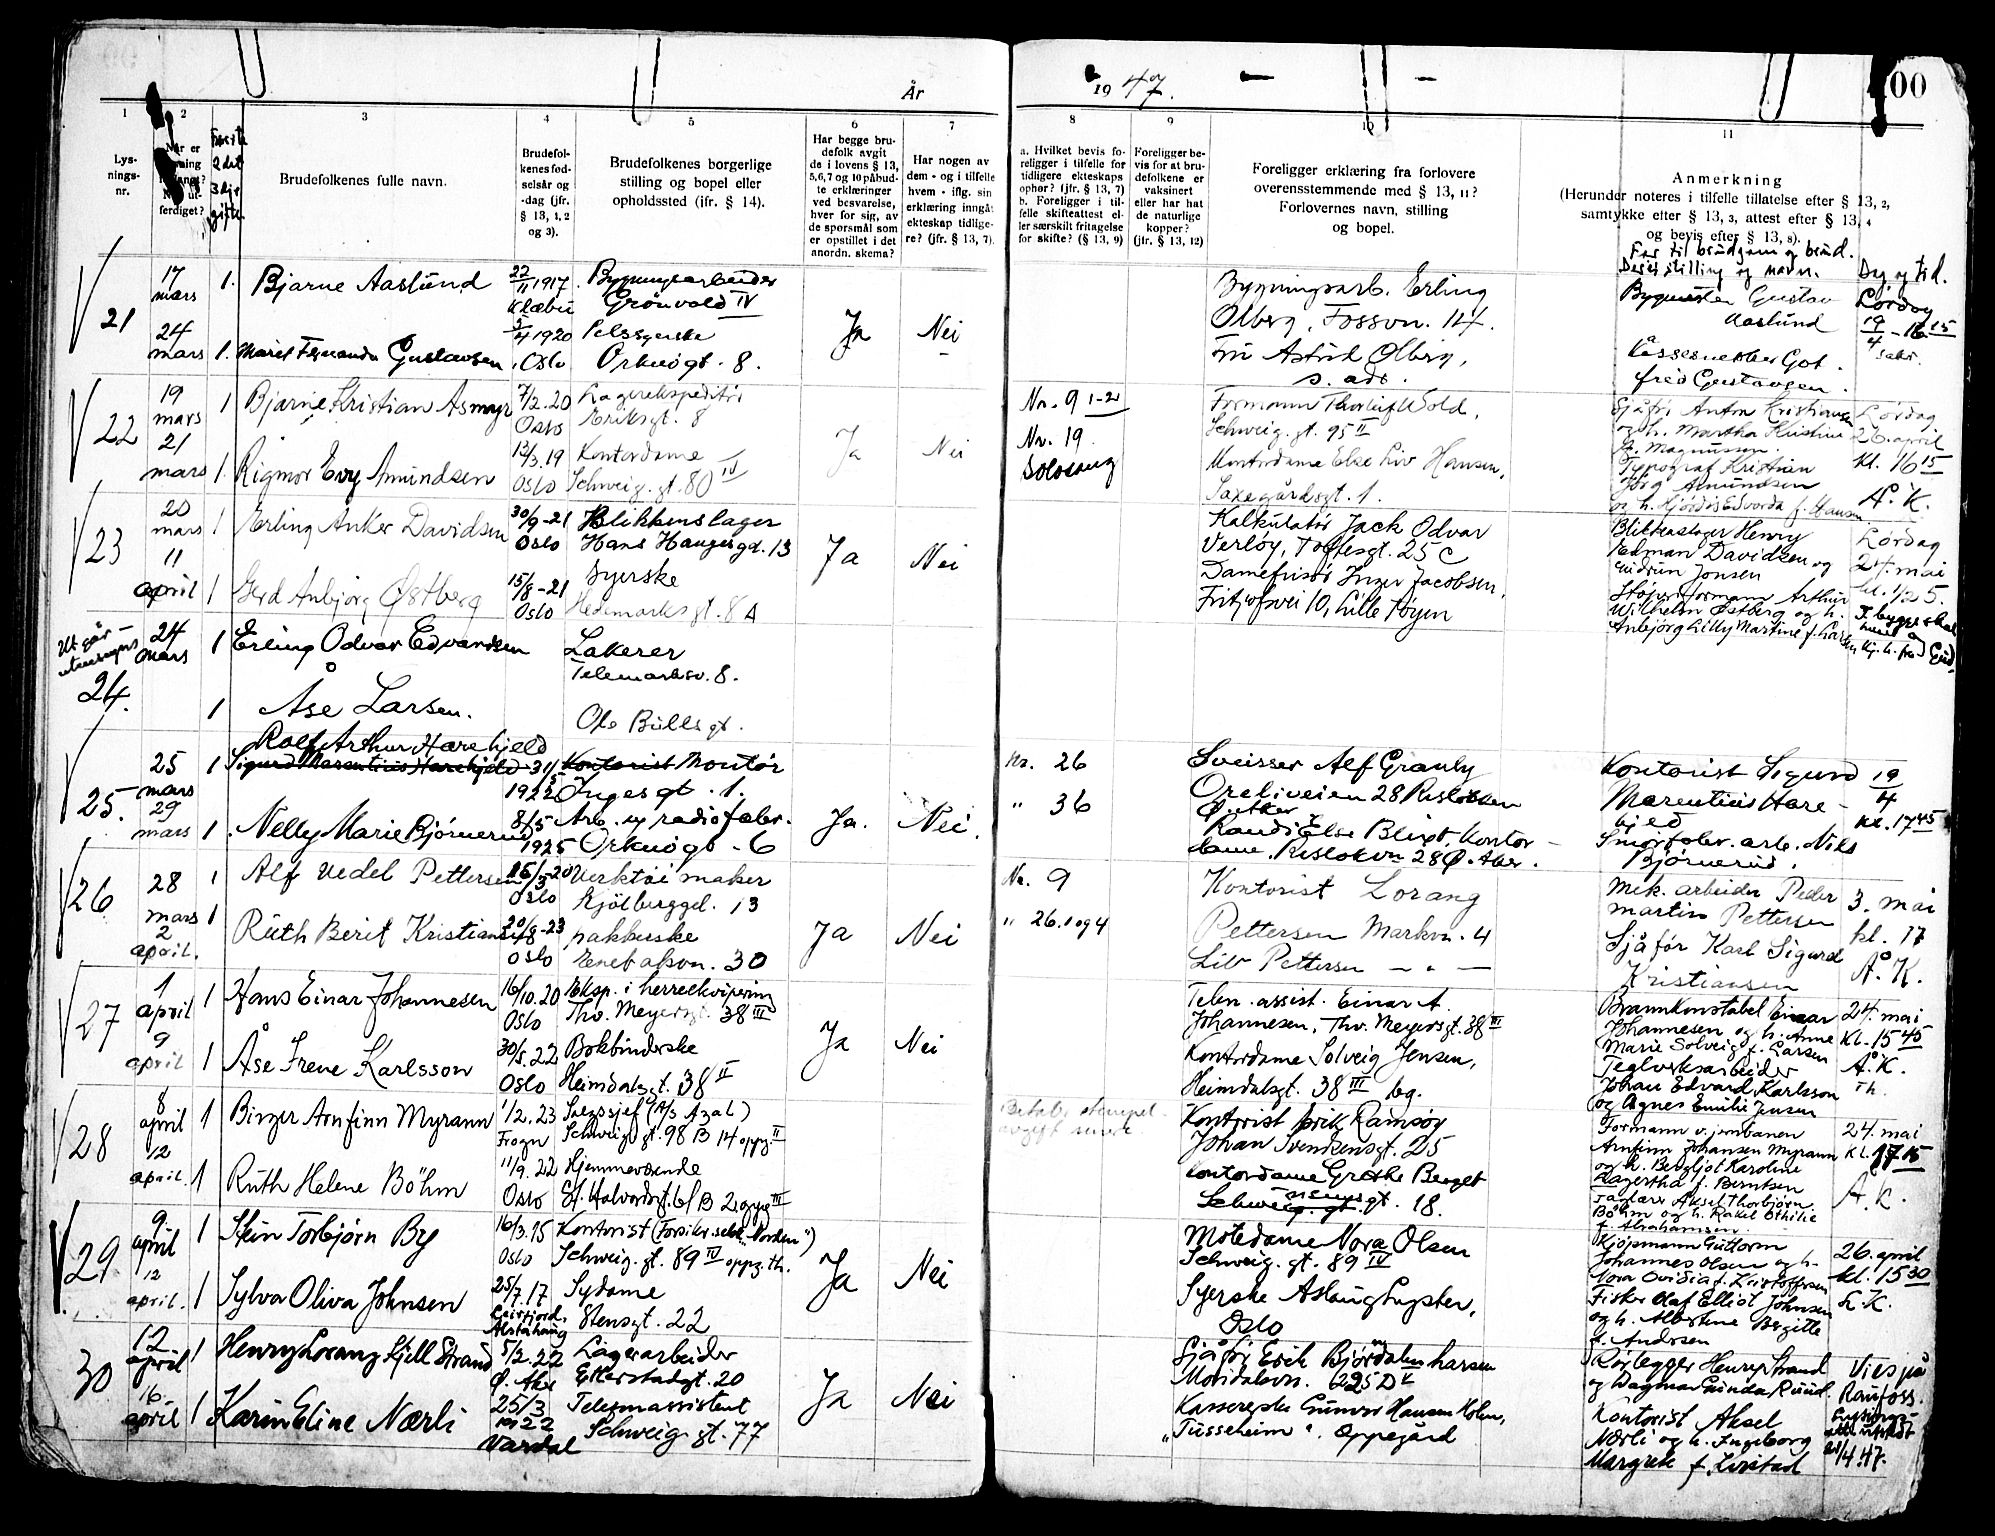 År
1947.
00
1
2
3
4
5
6
7
8
9
10
11
Lys-
nings-
nr.
Brudefolkenes fulle navn.
Brudefol-
kenes fød-
selsår og
-dag (jfr.
§ 13, 1, 2
og 3).
Brudefolkenes borgerlige
stilling og bopel eller
opholdssted (ifr. § 14).
Har begge bru-
defolk avgit
de i lovens § 13,
5,6,7 og 10 påbud-
te erklæringer
ved besvarelse,
hver for sig, av
de spørsmål som
er opstillet i det
anordn. skema?
Har nogen av
dem - og i tilfelle
hvem - iflg. sin
erklæring inngåt
ekteskap tidlige-
re? (jfr. § 13, 7).
a. Hvilket bevis fo-
religger i tilfelle for
tidligere ekteskaps
ophør? (jfr. § 13, 7)
b. Foreligger i til-
felle skifteattest el-
ler særskilt fritagelse
for skifte? (§ 13, 9)
Foreligger be-
vis for at bru-
defolkene er
vaksinert
eller har hat
de naturlige
kopper?
(jfr. § 13, 12)
Foreligger erklæring fra forlovere
overensstemmende med § 13, 11?
Forlovernes navn, stilling
og bopel.
Anmerkning
(Herunder noteres i tilfelle tillatelse efter § 13, 2,
samtykke efter § 13, 3, attest efter § 13, 4
og bevis efter § 13, 8).
Far til brudgom og brud.
Deres stilling og navn.
Dag og tid.
21
17
mars
24
mars
1. Bjarne Aaslund
22/11 1917
Klæbu
Bygningsarbeider
Grönvold IV
1. Marit Fernanda Gustavsen
5/4 1920
Oslo
Pelssyerske
Orknøgt. 8.
Ja
Nei
Bygningsarb. Erling
Olberg, Fossvn. 14.
Fru Astrid Olberg,
s. ads.
Bygmester Gustav
Aaslund
Gustavsen.
Lördag
19/4 - 16 15
22
19
mars
21
mars
1 Bjarne Kristian Asmyr
7/2. 20
Oslo
Lagerekspeditör
Eriksgt. 8
1. Rigmor Evy Amundsen
13/3. 19
Oslo
Kontordame
Schweig. gt. 80 IV
Ja
Nei
Nr. 9 1-2
Nr. 19.
Solosang
Formann Thorleif Wold,
Schweig. gt. 95 II
Kontordame Else Liv Hansen,
Saxegårdsgt. 1.
Sjåfør Anton Kristiansen
og h. Martha Kristine
f. Magnussen.
Typograf Kristian
Amundsen
og h. Hjördis Edvarda f. Hansen
Lördag
26. april
kl. 16 15
Å. K.
23
20
mars
11
april
1 Erling Anker Davidsen
30/9-21
Oslo
Blikkenslager
Hans Haugesgd. 13
1 Gerd Anbjørg Østberg
15/8-21
Oslo
Syerske
Hedemarksgt. 8 A
Ja
Nei
Kalkulatör Jack Odvar
Verløy, Toftesgt. 25 C
Damefrisör Inger Jacobsen,
Fritjofsvei 10, Lille Tøyen
Blikkenslager Henry
Edman Davidsen og
Gudrun Jonsen
formann Arthur
Wilhelm Østberg og h.
Anbjørg Lilly Martine f. Larsen
Lördag
24. mai
kl. 1/2 5.
Utgår
24.
24
mars
1 Erling Odvar Edvardsen
Lakerer
Telemarksv. 8.
1 Åse Larsen.
Ole Bullsgt.
25.
25
mars
29
mars
Rolf Arthur Harehjeld
1 Sigurd Marentius Harehjeld
31/5
1922
Kontorist Montör
Ingesgt. 1.
1. Nelly Marie Bjørnerud
8/5
1925
Arb. og radiofabr.
Orknøgt - 6
Ja.
Nei.
Nr. 26
" 36
Sveisser Alf Granly
Oreliveien 28 Risløkken
Ø. Aker
Randi Else Blixt, Kontor-
dame. Risløkvn 28 Ø. Aker.
Kontorist Sigurd
Marentius Hare-
hjeld
Smörfabr. arb. Nils
Bjørnerud.
19
4
kl. 17 45
26
28
mars
2
april.
1 Alf Vedel Pettersen
Oslo
Verktöimaker
Kjölberggd. 13
1 Ruth Berit Kristiansen
Oslo
pakkerske
Enebakvn. 30
Ja
Nei
Nr. 9
" 26. 1 og 4
Kontorist Lorang
Pettersen Markvn. 4
Liv Pettersen - " -
Mek. arbeider Peder
Martin Pettersen
Sjåför Karl Sigurd
Kristiansen
3. mai
kl. 17
Å. K.
27
1
april
9
april
1 Hans Einar Johannesen
16/10. 20
Oslo
Eksp. i herreekvipering
Thv. Meyersgt. 38 III
1 Åse Irene Karlsson
30/5. 22
Oslo
Bokbinderske
Heimdalsgt. 38 II
Ja
Nei
Telen. assist. Einar A.
Johannesen, Thv. Meyersgt. 38 III
Kontordame Solveig Jensen,
Heimdalsgt. 38 III bg.
Brannkonstabel Einar
Johannesen og h. Anne
Marie Solveig f. Larsen
Teglverksarbeider
Johan Edvard Karlsson
og Agnes Emilie Jensen
24. mai
kl. 15 45
Å. K.
Th.
28
8
april
12
april.
1 Birger Arnfinn Myrann
1/2. 23
Frogn
Salgssjef (A/S Azal)
Schweig. gt. 98 B 14 oppg. II
1 Ruth Helene Böhm
11/9. 22
Oslo
Hjemmeværende
St. Halvardsgt. 61 B 2. oppg. III
Betalt stempel-
avgift senere.
Kontorist Erik Ramsøy
Johan Svendsensgt. 25
Kontordame Grethe Berget
Schweig. gt. 18.
Formann v. jernbanen
Arnfinn Johansen Myrann
og h. Bergljot Karoline
Lagertha f. Berntsen
Aksel Thorbjørn
Böhm og h. Rakel Othilie
f. Abrahamsen
24. mai
kl. 17 15
Å. K.
29
9
april
12
april.
1 Stein Torbjørn By
16/3. 15
Oslo
Kontorist (Forsikr. selsk. "Norden")
Schweig. gt. 89 IV oppg. th.
1 Sylva Oliva Johnsen
25/7. 17
Leirfjord,
Alstahaug
Sydame
Stensgt. 22
Ja
Nei
Motedame Nora Olsen
Schweig. gt. 89 IV
Syerske Aslaug
Oslo
Kjøpmann Guttorm
Johannes Olsen og h.
Nora Ovidia f. Kristoffersen
Fisker Olaf Elliot Johnsen
og h. Albertine Bergitte
f. Andersen
26. april
kl. 15 30
30
12
april
16
april
1 Henry Lorang Kjell Strand
5/2. 22
Ø. Aker
Lagerarbeider
Etterstadgt. 20
1 Karin Eline Nærli
25/3
1922
Vardal
Telefonassistent
Schweig. gt. 77
Ja
Nei
Sjåför Erik Bjørdalen Larsen
Maridalsvn. 225 D V
Kasserepske Gunvor Hansen Holm,
"Tusseheim", Oppegård
Rörlegger Henry Strand
og Dagmar Gunda Ruud.
Kontorist Aksel
Nærli og h. Ingeborg
Margrete f. Kvistad
Vies på
Raufoss.
21/4.47.